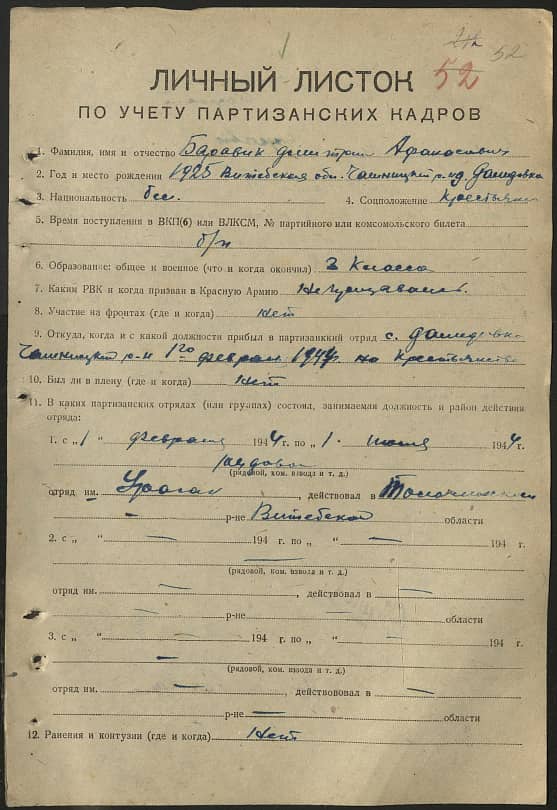 52
52
ЛИЧНЫЙ ЛИСТОК
ПО УЧЕТУ ПАРТИЗАНСКИХ КАДРОВ
1. Фамилия, имя и отчество Баравик Афанасович
2. Год и место рождения 1925 Витебская обл. Чашницкий р-н д.
3. Национальность бел. 4. Соцположение
5. Время поступления в ВКП(б) или ВЛКСМ, № партийного или комсомольского билета
б/п
6. Образование: общее и военное (что и когда окончил) 3 класса
7. Каким РВК и когда призван в Красную Армию
8. Участие на фронтах (где и когда) нет
9. Откуда, когда и с какой должности прибыл в партизанккий отряд с.
р-н 1го 1944г.
10. Был ли в плену (где и когда) нет
11. В каких партизанских отрядах (или группах) состоял, занимаемая должность и район действия
отряда:
1. с „1 “ февраля 1944 г. по „1. 1944 г.
рядовой
(рядовой, ком. взвода и т. д.)
отряд им. Ураган, действовал в
– р-не Витебской области
2. с „ “ — 194 г. по „ “ — 194 г.
—
(рядовой, ком. взвода и т. д.)
отряд им. —, действовал в —
— р-не — области
3. с „ “ — 194 г. по „ “ — 194 г.
—
(рядовой, ком. взвода и т. д.)
отряд им. —, действововал в —
— р-не — области
12. Ранения и контузии (где и когда) нет